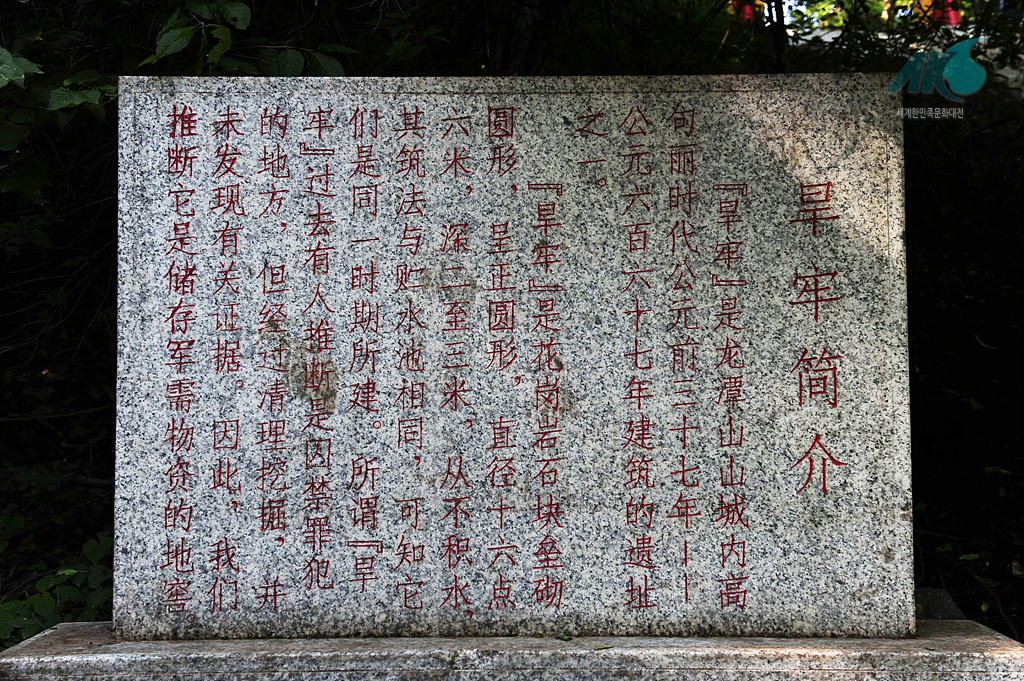 旱牢简介
『旱牢』是龙潭山山城内高
句丽时代公元前三十七年——
公元六百六十七年建筑的遗址
之一。
『旱牢』是花岗岩石块垒砌
圆形，呈正圆形，直径十六点
六米，深二至三米，从不积水，
其筑法与贮水池相同，可知它
们是同一时期所建。所谓『旱
牢』过去有人推断是囚禁罪犯
的地方，但经过清理挖掘，并
未发现有关证据。因此，我们
推断它是储存军需物资的地窖。
세계한민족문화대전